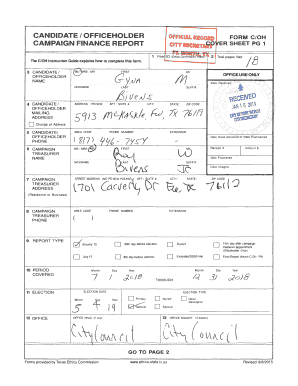 CANDIDATE / OFFICEHOLDER
CAMPAIGN FINANCE REPORT
OFFICIAL RECORD
CITY SECRETARY
FT. WORTH, TX
FORM C/OH
COVER SHEET PG 1
The C/OH Instruction Guide explains how to complete this form.
2 Total pages filed:
18
3 CANDIDATE / OFFICEHOLDER NAME
MS / MRS / MR FIRST MI
Gyna M
NICKNAME LAST SUFFIX
Bivens
OFFICE USE ONLY
Date Received
RECEIVED
4 CANDIDATE / OFFICEHOLDER MAILING ADDRESS
Change of Address
ADDRESS / PO BOX; APT / SUITE #; CITY; STATE; ZIP CODE
5913
5 CANDIDATE / OFFICEHOLDER PHONE
AREA CODE PHONE NUMBER EXTENSION
(817) 446-7457
Date Hand-delivered or Date Postmarked
Receipt # Amount $
Date Processed
Date Imaged
6 CAMPAIGN TREASURER NAME
MS / MRS / MR FIRST MI
Ray W
NICKNAME LAST SUFFIX
Bivens Jr
7 CAMPAIGN TREASURER ADDRESS
(Residence or Business)
STREET ADDRESS (NO PO BOX PLEASE); APT / SUITE #; CITY; STATE; ZIP CODE
1701 76112
8 CAMPAIGN TREASURER PHONE
AREA CODE PHONE NUMBER EXTENSION
( )
9 REPORT TYPE
January 15
30th day before election
Runoff
15th day after campaign treasurer appointment (Officeholder Only)
July 15
8th day before election
Exceeded $500 limit
Final Report (Attach C/OH - FR)
10 PERIOD COVERED
Month Day Year
7 / 1 / 2018
THROUGH
Month Day Year
12 / 31 / 2018
11 ELECTION
ELECTION DATE
Month Day Year
5 / 4 / 19
ELECTION TYPE
Primary
Runoff
Other Description
General
Special
12 OFFICE
OFFICE HELD (if any)
City Council
13 OFFICE SOUGHT (if known)
City Council
GO TO PAGE 2
Forms provided by Texas Ethics Commission
www.ethics.state.tx.us
Revised 9/8/2015